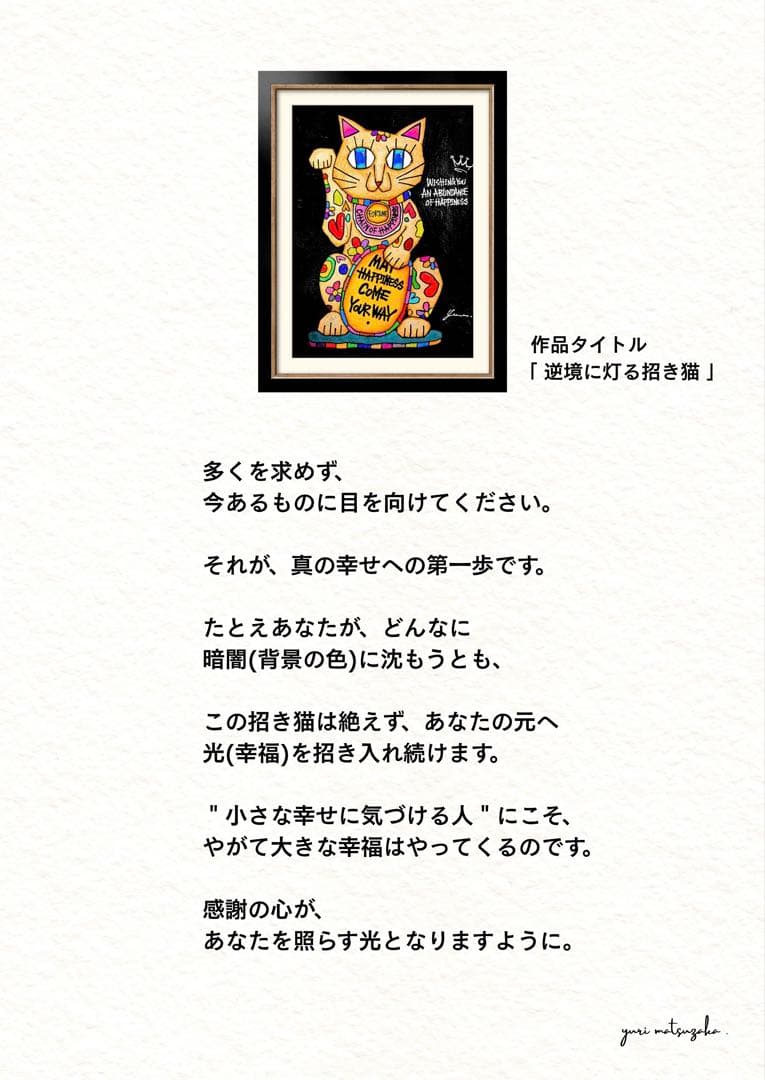 WISHING YOU
AN ABUNDANCE
OF HAPPINESS
FORTUNE
CHAIN OF HAPPINESS
MAY
HAPPINESS
COME
YOUR WAY
作品タイトル
「 逆境に灯る招き猫 」
多くを求めず、
今あるものに目を向けてください。
それが、真の幸せへの第一歩です。
たとえあなたが、どんなに
暗闇(背景の色)に沈もうとも、
この招き猫は絶えず、あなたの元へ
光(幸福)を招き入れ続けます。
" 小さな幸せに気づける人 " にこそ、
やがて大きな幸福はやってくるのです。
感謝の心が、
あなたを照らす光となりますように。
yuri matsuzaka .